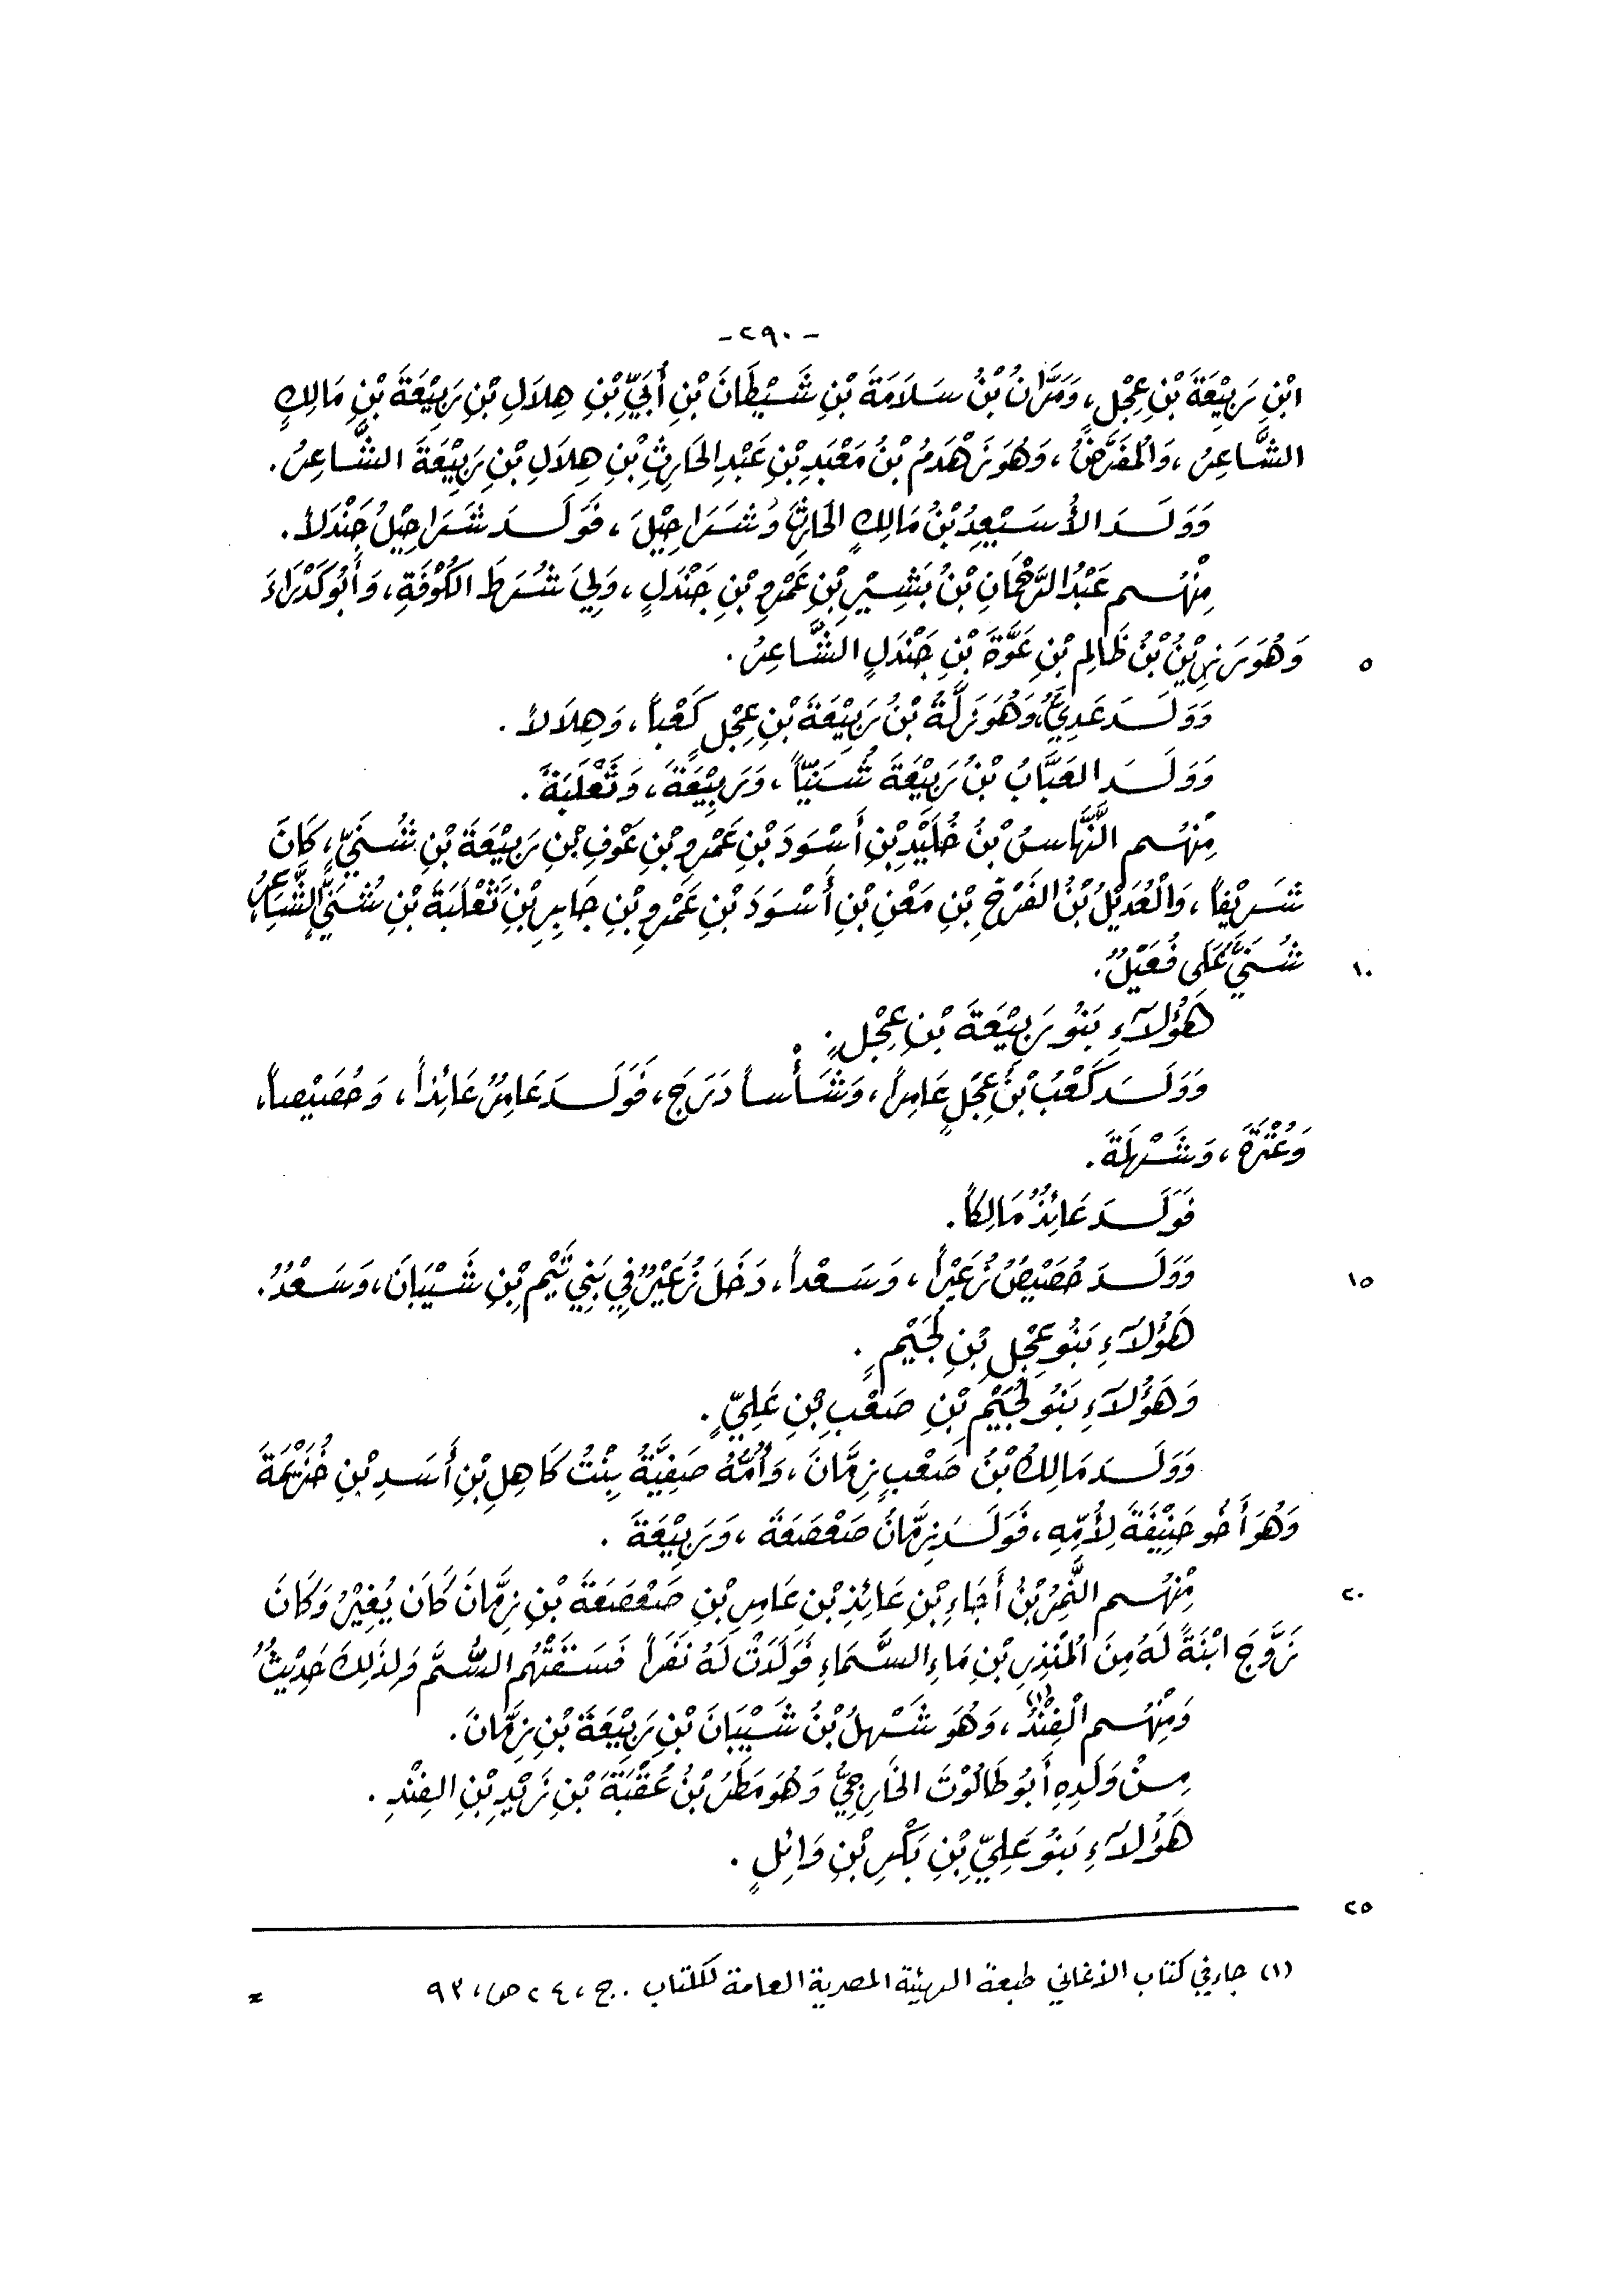 - ٢٩٠ -
ابْنِ رَبِيْعَةَ بْنِ عِجْلٍ، وَمَرَّانُ بْنُ سَلَامَةَ بْنِ شَيْطَانَ بْنِ أُبَيِّ بْنِ هِلَالِ بْنِ رَبِيْعَةَ بْنِ مَالِكٍ
الشَّاعِرُ، وَالْمُفَرَّضُ، وَهُوَ زَهْدَمُ بْنُ مَعْبَدِ بْنِ عَبْدِ الحَارِثِ بْنِ هِلَالِ بْنِ رَبِيْعَةَ الشَّاعِرُ.
وَوَلَدَ الأُسَيْعِدُ بْنُ مَالِكٍ الحَارِثَ وَشَرَاحِيْلَ، فَوَلَدَ شَرَاحِيْلُ جَنْدَلاً.
مِنْهُم عَبْدُ الرَّحْمَانِ بْنُ بَشِيْرِ بْنِ عَمْرِو بْنِ جَنْدَلٍ، وَلِيَ شُرَطَ الكُوْفَةِ، وَأَبُو كَدْرَاءَ
وَهُوَ رَزِيْنُ بْنُ ظَالِمِ بْنِ عَوَّةَ بْنِ جَنْدَلٍ الشَّاعِرُ.
٥
وَوَلَدَ عَدِيٌّ، وَهُوَ زَلَّةُ بْنُ رَبِيْعَةَ بْنِ عِجْلٍ كَعْباً، وَهِلَالاً.
وَوَلَدَ العَبَّابُ بْنُ رَبِيْعَةَ شُنَيّاً، وَرَبِيْعَةَ، وَثَعْلَبَةَ.
مِنْهُم النَّهَّاسُ بْنُ خُلَيْدِ بْنِ أَسْوَدَ بْنِ عَمْرِو بْنِ عَوْفِ بْنِ رَبِيْعَةَ بْنِ شُنَيٍّ، كَانَ
شَرِيْفاً، وَالْعُدَيْلُ بْنُ الفَرْخِ بْنِ مَعْنِ بْنِ أَسْوَدَ بْنِ عَمْرِو بْنِ جَابِرِ بْنِ ثَعْلَبَةَ بْنِ شُنَيٍّ الشَّاعِرُ،
شُنَيٌّ عَلَى فُعَيْلٌ.
١٠
هَؤُلَآءِ بَنُو رَبِيْعَةَ بْنِ عِجْلٍ.
وَوَلَدَ كَعْبُ بْنُ عِجْلٍ عَامِراً، وَشَأْساً دَرَجَ، فَوَلَدَ عَامِرٌ عَائِذاً، وَحُصَيْصاً،
وَعُتْرَةَ، وَشَهْلَةَ.
فَوَلَدَ عَائِذٌ مَالِكاً.
وَوَلَدَ حُصَيْصٌ زُعَيْراً، وَسَعْداً، دَخَلَ زُعَيْرٌ فِي بَنِي تَيْمِ بْنِ شَيْبَانَ، وَسَعْدٌ.
١٥
هَؤُلَآءِ بَنُو عِجْلِ بْنِ لُجَيْمٍ.
وَهَؤُلَآءِ بَنُو لُجَيْمِ بْنِ صَعْبِ بْنِ عَلِيٍّ.
وَوَلَدَ مَالِكُ بْنُ صَعْبٍ زِمَّانَ، وَأُمُّهُ صَفِيَّةُ بِنْتُ كَاهِلِ بْنِ أَسَدِ بْنِ خُزَيْمَةَ
وَهُوَ أَخُو حَنِيْفَةَ لِأُمِّهِ، فَوَلَدَ زِمَّانُ صَعْصَعَةَ، وَرَبِيْعَةَ.
مِنْهُم النَّمِرُ بْنُ أَجَاءِ بْنِ عَائِذِ بْنِ عَامِرِ بْنِ صَعْصَعَةَ بْنِ زِمَّانَ كَانَ يُغِيْرُ وَكَانَ
٢٠
زَوَّجَ ابْنَةً لَهُ مِنَ الْمُنْذِرِ بْنِ مَاءِ السَّمَاءِ فَوَلَدَتْ لَهُ نَفَراً فَسَقَتْهُم السُّمَّ وَلِذَلِكَ حَدِيْثٌ
وَمِنْهُم الْفِنْدُ(١)، وَهُوَ شَهْلُ بْنُ شَيْبَانَ بْنِ رَبِيْعَةَ بْنِ زِمَّانَ.
مِنْ وَلَدِهِ أَبُو طَالُوْتَ الخَارِجِيُّ وَهُوَ مَطَرُ بْنُ عُقْبَةَ بْنِ زَيْدِ بْنِ الفِنْدِ.
هَؤُلَآءِ بَنُو عَلِيِّ بْنِ بَكْرِ بْنِ وَائِلٍ.
٢٥
(١) جاء في كتاب الأغاني طبعة الهيئة المصرية العامة للكتاب. ج، ٢٤ ص، ٩٣ =